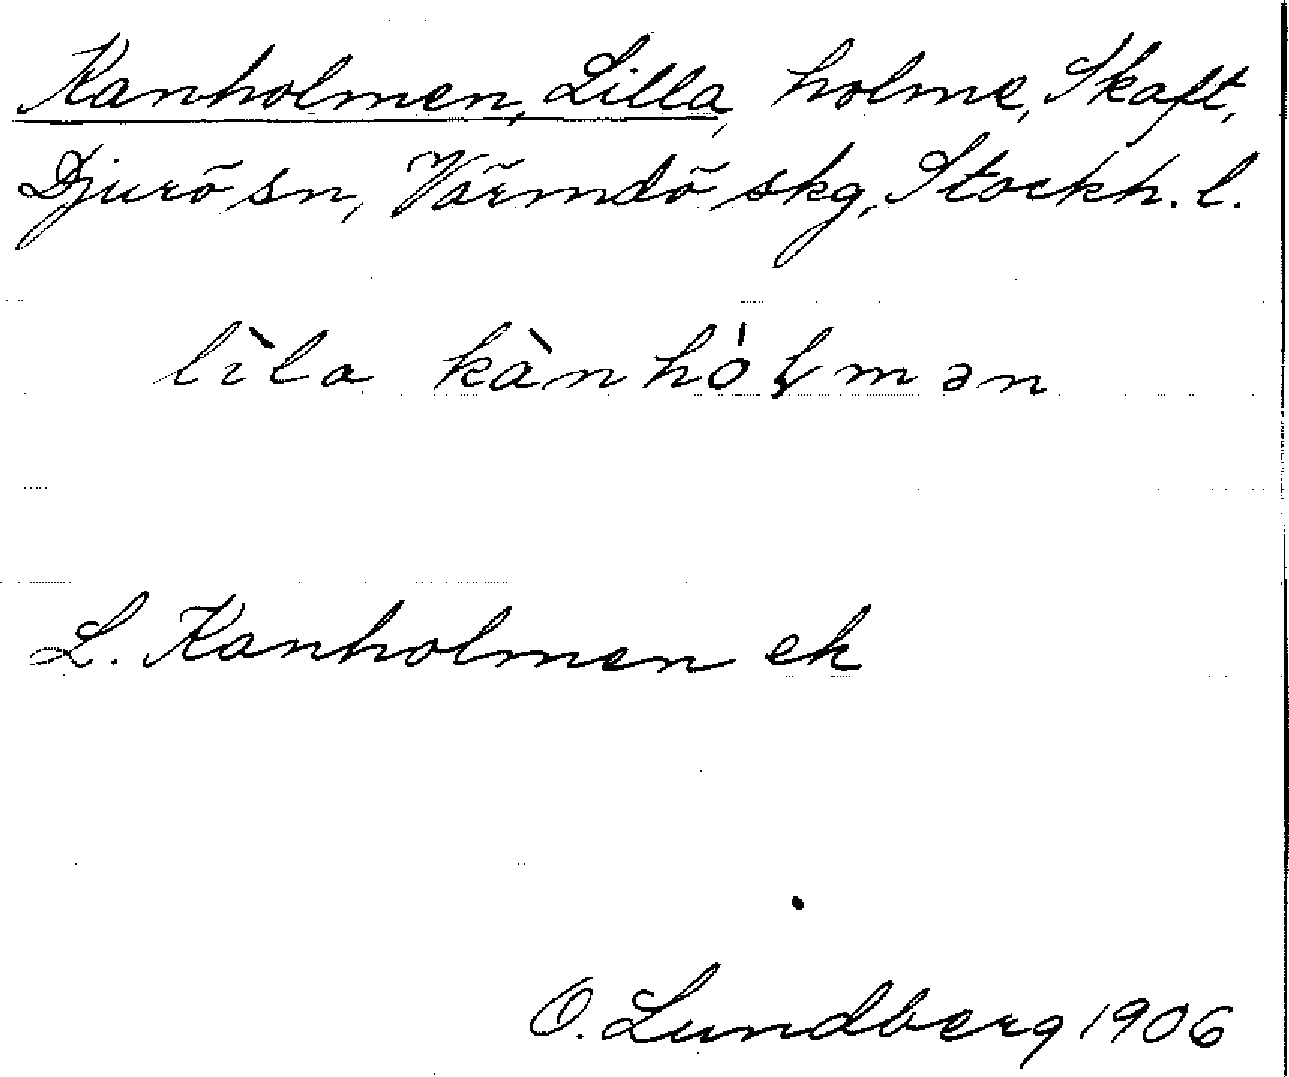 Kanholmen, Lilla, holme, Skaft,
Djurö sn, Värmdö skg, Stockh. l.
lìla kànhóɭmən
L. Kanholmen ek
O. Lundberg 1906